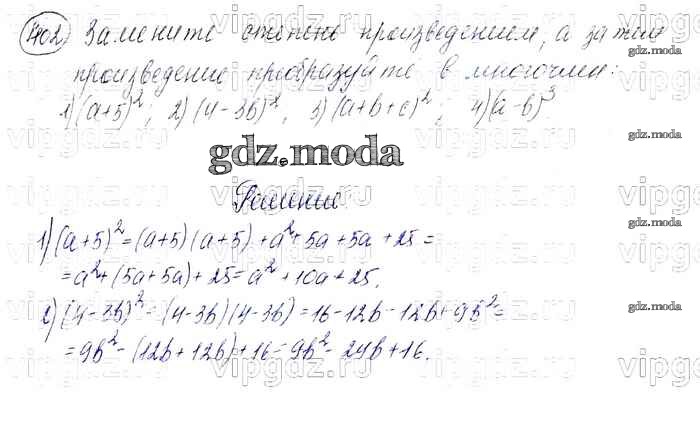 402) Замените степень произведением, а затем
произведение преобразуйте в многочлен:
1) (a+5)², 2) (4-3b)², 3) (a+b+c)²; 4) (a-b)³
gdz.moda
Решение
1) (a+5)² = (a+5)(a+5) + a² + 5a + 5a + 25 =
= a² + (5a+5a) + 25 = a² + 10a + 25.
2) (4-3b)² = (4-3b)(4-3b) = 16 - 12b - 12b + 9b² =
= 9b² - (12b + 12b) + 16 = 9b² - 24b + 16.
gdz.moda
gdz.moda
gdz.moda
gdz.moda
gdz.moda
vipgdz.ru